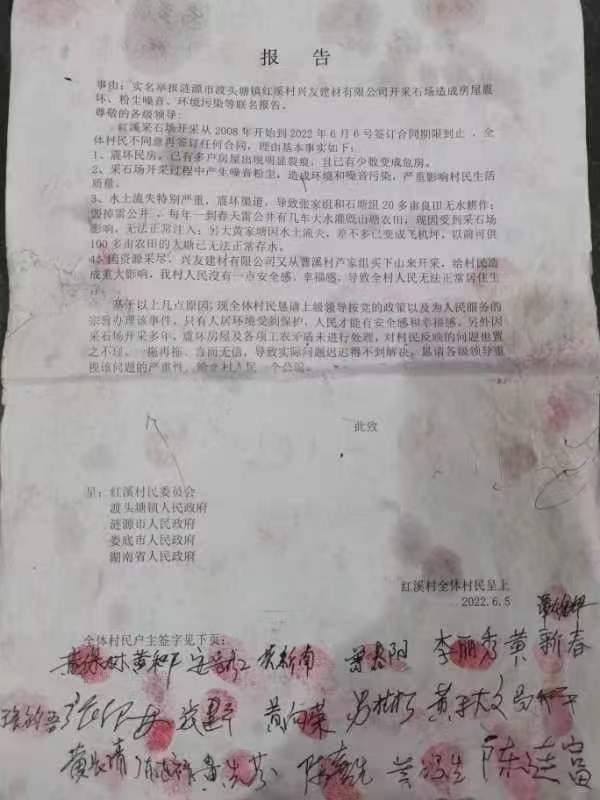 报 告
事由：实名举报涟源市渡头塘镇红溪村兴友建材有限公司开采石场造成房屋震
坏、粉尘噪音、环境污染等联名报告。
尊敬的各级领导：
红溪采石场开采从2008年开始到2022年6月6号签订合同期限到止，全
体村民不同意再签订任何合同，理由基本事实如下：
1、震坏民房，已有多户房屋出现明显裂痕，且已有少数变成危房。
2、采石场开采过程中产生噪音粉尘，造成环境和噪音污染，严重影响村民生活
质量。
3、水土流失特别严重，震坏渠道，导致张家组和石塘组20多亩良田无水耕作；
毁掉雷公井，每年一到春天雷公井有几车大水灌溉山塘农田，现因受到采石场
影响，无法正常注入；另大黄家塘因水土流失，差不多已变成飞机坪，以前可供
100多亩农田的大塘已无法正常存水。
4、因资源采尽，兴友建材有限公司又从曹溪村芦家组买下山来开采，给村民造
成重大影响，我村人民没有一点安全感、幸福感，导致全村人民无法正常居住生
活。
基于以上几点原因，现全体村民恳请上级领导按党的政策以及为人民服务的
宗旨办理该事件，只有人居环境受到保护，人民才能有安全感和幸福感。另外因
采石场开采多年，震坏房屋及各项工农矛盾未进行处理，对村民反映的问题也置
之不理，一拖再拖，言而无信，导致实际问题迟迟得不到解决，恳请各级领导重
视该问题的严重性，给全村人民一个公道。
此致
呈：红溪村民委员会
渡头塘镇人民政府
涟源市人民政府
娄底市人民政府
湖南省人民政府
红溪村全体村民呈上
2022.6.5
全体村民户主签字见下页：
黄新南 曾春阳 李丽秀 黄新春
黄向荣
黄长清 陈建富